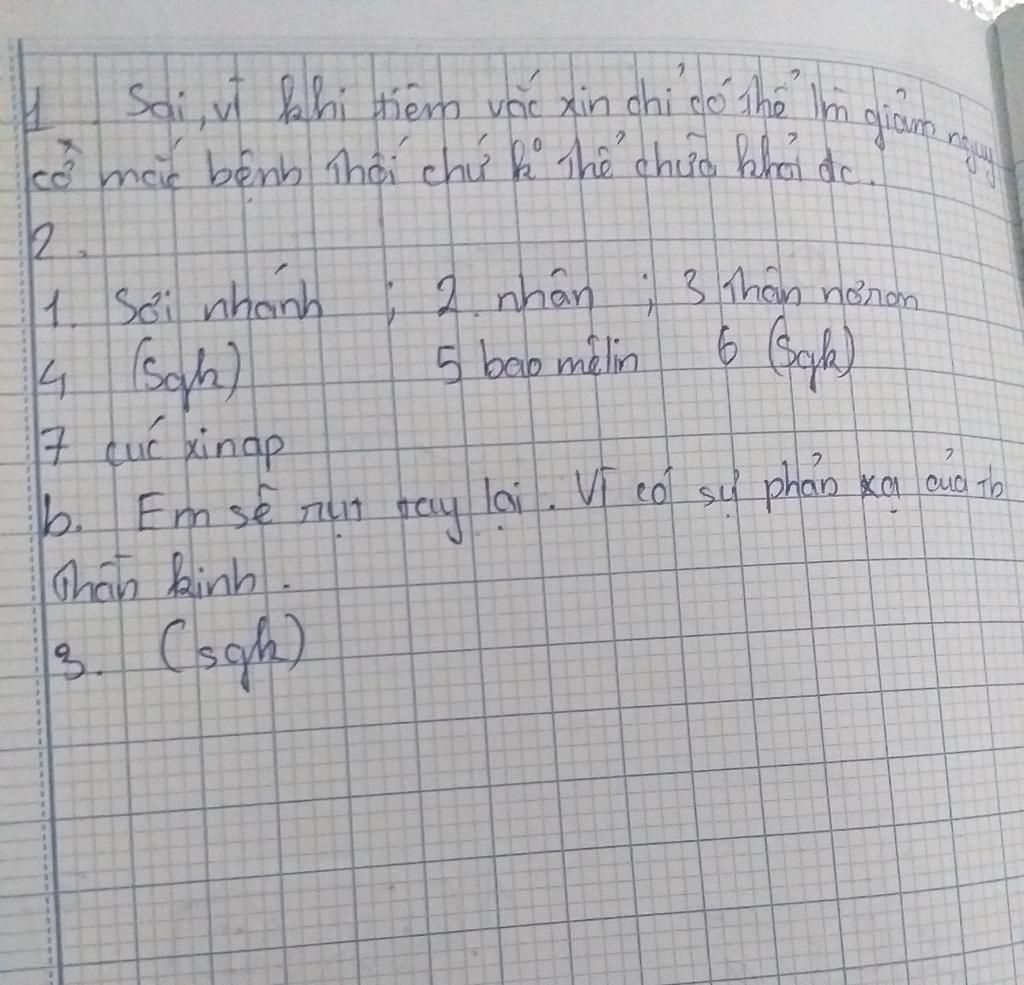 1 Sai, vì khi tiêm vác xin chỉ có thể làm giảm nguy
cơ mắc bệnh thôi chứ k° thể chữa khỏi đc.
2.
1. Sợi nhánh ; 2. nhân ; 3 thân nơron
4 (sgk) 5 bao mêlin 6 (sgk)
7 cúc xinap
b. Em sẽ rụt tay lại. Vì có sự phản xạ của tb
thần kinh.
3. (sgk)